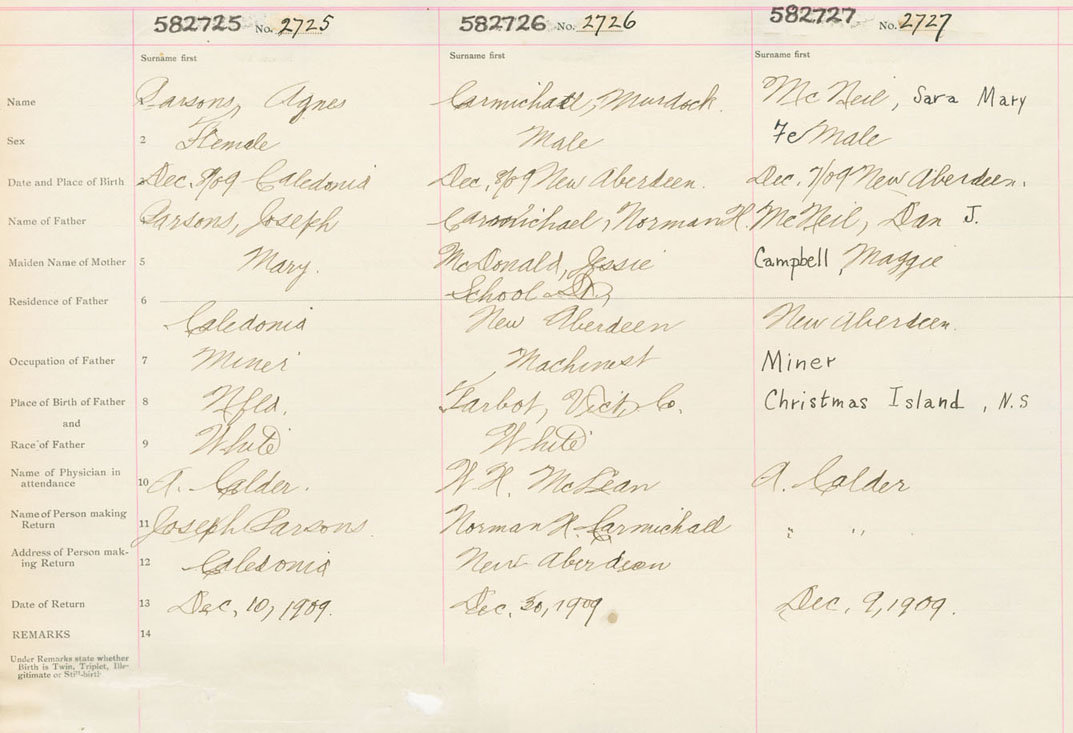 582725 No. 2725 582726 No. 2726 582727 No. 2727
Surname first Surname first Surname first
Name 1 Parsons, Agnes Carmichael, Murdock. McNeil, Sara Mary
Sex 2 Female Male Female
Date and Place of Birth 3 Dec. 9/09 Caledonia Dec. 9/09 New Aberdeen. Dec. 7/09 New Aberdeen.
Name of Father 4 Parsons, Joseph Carmichael, Norman H. McNeil, Dan J.
Maiden Name of Mother 5 Mary. McDonald, Jessie Campbell, Maggie
School
Residence of Father 6 Caledonia New Aberdeen New Aberdeen.
Occupation of Father 7 Miner Machinest Miner
Place of Birth of Father 8 Nfld. Tarbot, Vict. Co. Christmas Island, N.S
and
Race of Father 9 White White
Name of Physician in
attendance 10 A. Calder. W. H. McLean A. Calder
Name of Person making
Return 11 Joseph Parsons. Norman H. Carmichael " "
Address of Person mak-
ing Return 12 Caledonia New Aberdeen
Date of Return 13 Dec. 10, 1909. Dec. 30, 1909 Dec. 9, 1909.
REMARKS 14
Under Remarks state whether
Birth is Twin, Triplet, Ille-
gitimate or Still-birth